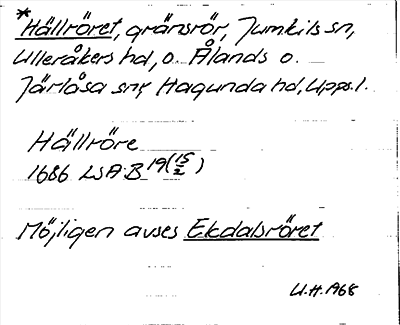 *Hällröret, gränsrör, Jumkils sn,
Ulleråkers hd, o. Ålands o.
Järlåsa snr, Hagunda hd, Upps. l.
Hällröre
1686 LSA B 19 (15/2)
Möjligen avses Ekdalsröret
U.H. 1968